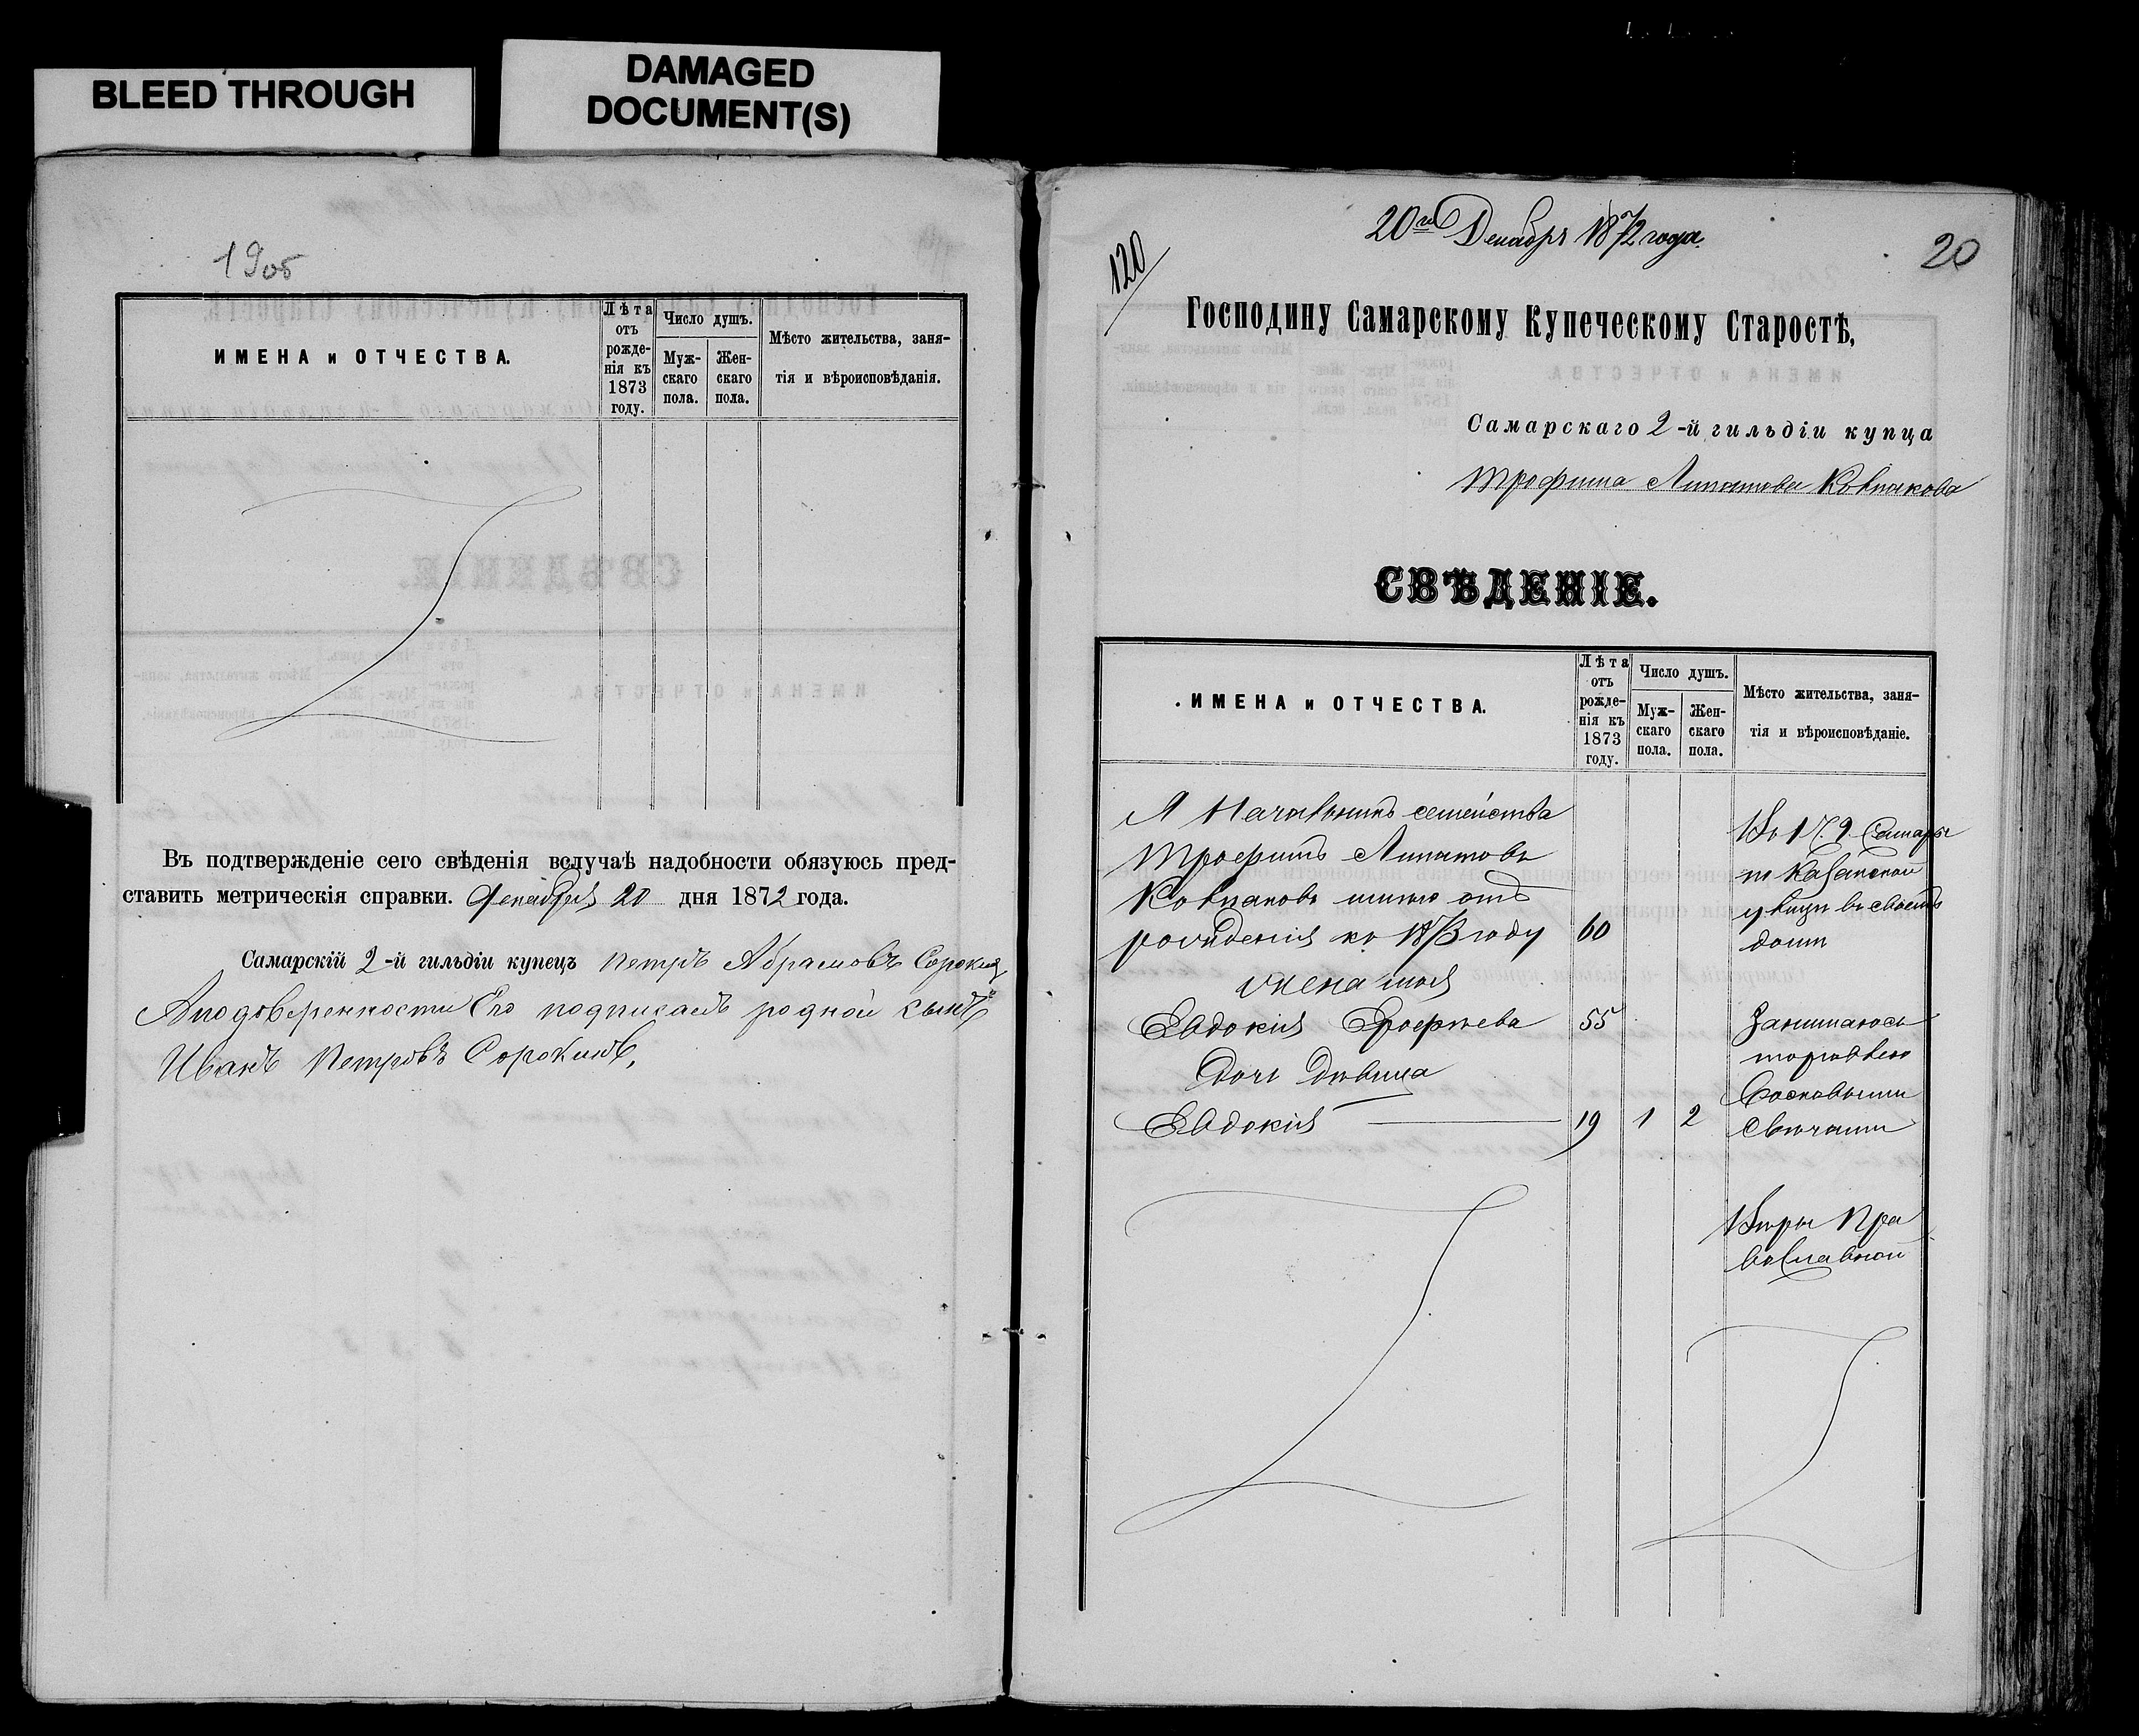 BLEED THROUGH
DAMAGED
DOCUMENT(S)
19об
ИМЕНА и ОТЧЕСТВА.
Лѣта
отъ
рожде-
нія къ
1873
году.
Число душъ.
Муж-
скаго
пола.
Жен-
скаго
пола.
Мѣсто жительства, заня-
тія и вѣроисповѣданія.
Въ подтвержденіе сего свѣденія вслучаѣ надобности обязуюсь пред-
ставить метрическія справки. Декабря 20 дня 1872 года.
Самарскій 2-й гильдіи купецъ Петръ Абрамовъ Сорокин
Аподоверенности Его подписалъ родной сынъ
Иванъ Петровъ Сорокинъ,
20го Декабря 1872 года.
120
20
Господину Самарскому Купеческому Старостѣ,
Самарскаго 2-й гильдіи купца
Трофима Липатова Ковпакова
СВѢДЕНІЕ.
ИМЕНА и ОТЧЕСТВА.
Лѣта
отъ
рожде-
нія къ
1873
году.
Число душъ.
Муж-
скаго
пола.
Жен-
скаго
пола.
Мѣсто жительства, заня-
тія и вѣроисповѣданіе.
Я Начальникъ семейства
Трофимъ Липатовъ
Ковпаковъ отъ
рожденія ко 1873 году 60
жена моя
Евдокія 55
Дочь Дѣвица
Евдокія 19 1 2
Самары
по Казанской
улицѣ въ своемъ
домѣ
Занимаюсь
торговлею
Восковыми
Свѣчами
Вѣры Пра
вославной